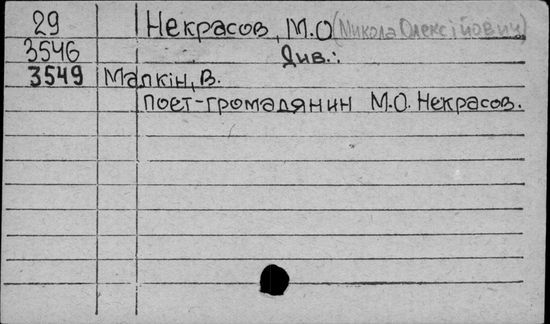 29 Некрасов, М.О (Микола Олексійович)
3546 Див.:
3549 Малкін, В.
Поет-громадянин М.О. Некрасов.